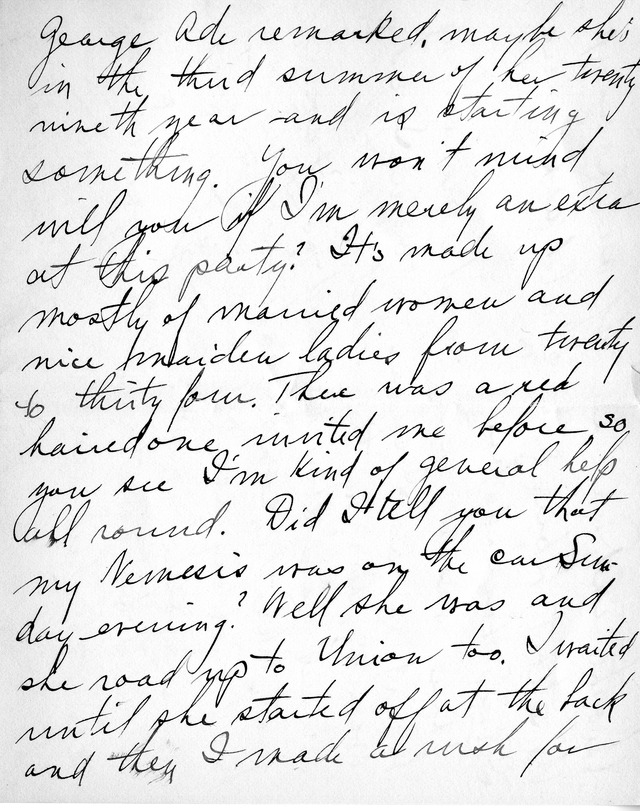 George Ade remarked, maybe she's
in the third summer of her twenty
nineth year and is starting
something. You won't mind
will you if I'm merely an extra
at this party? It's made up
mostly of married women and
nice maiden ladies from twenty
to thirty four. There was a red
haired one invited me before so
you see I'm kind of general help
all round. Did I tell you that
my Nemesis was on the car Sun-
day evening? Well she was and
she road up to Union too. I waited
until she started off at the back
and then I made a rush for